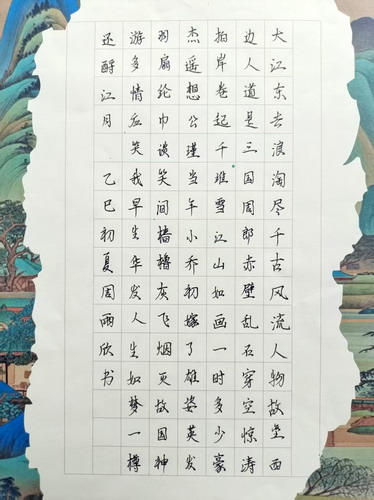 大江东去浪淘尽千古风流人物故垒西
边人道是三国周郎赤壁乱石穿空惊涛
拍岸卷起千堆雪江山如画一时多少豪
杰遥想公瑾当年小乔初嫁了雄姿英发
羽扇纶巾谈笑间樯橹灰飞烟灭故国神
游多情应笑我早生华发人生如梦一樽
还酹江月 乙巳初夏周雨欣书